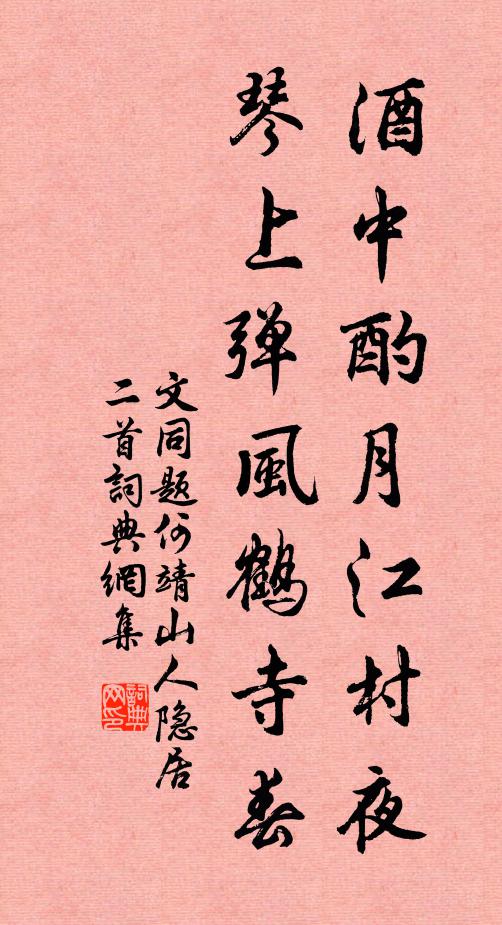 酒中酌月江村夜
琴上弹風鶴寺春
文同题何靖山人隐居
二首詞典網集
詞典
网印